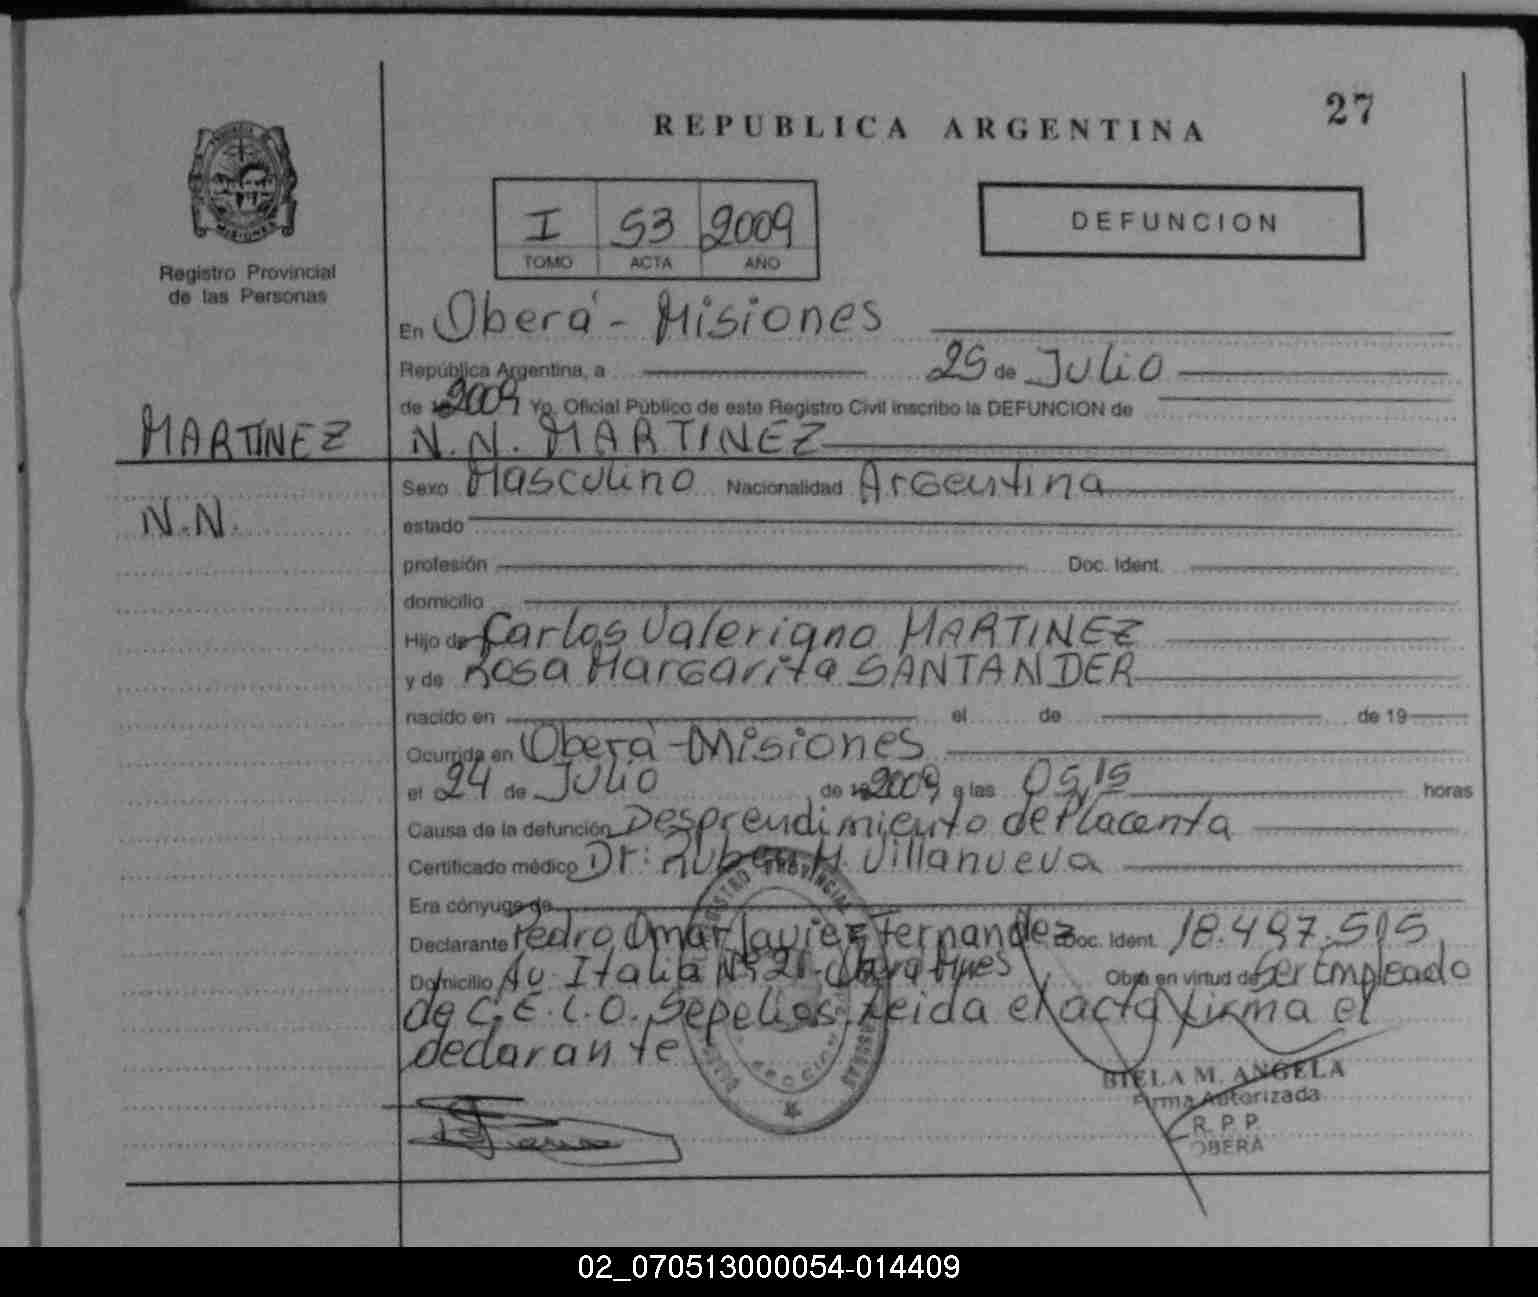 27
REPUBLICA ARGENTINA
I 53 2009
TOMO ACTA AÑO
DEFUNCION
Registro Provincial
de las Personas
En Oberá - Misiones
República Argentina, a 25 de Julio
de 2009 Yo, Oficial Público de este Registro Civil inscribo la DEFUNCION de
MARTINEZ N.N. MARTINEZ
Sexo Masculino Nacionalidad Argentina
N.N.
estado
profesión Doc. Ident.
domicilio
Hijo de Carlos Valeriano MARTINEZ
y de Rosa Margarita SANTANDER
nacido en el de de 19
Ocurrida en Oberá - Misiones
el 24 de Julio de 2009 a las 05,15 horas
Causa de la defunción Desprendimiento de Placenta
Certificado médico Dr: Ruben H. Villanueva
Era cónyuge de
Declarante Pedro Omar Javier Fernandez Doc. Ident. 18.497.515
Domicilio Av Italia Nº 21 - Obera Mnes Obra en virtud de Ser Empleado
de C.E.L.O. Sepelios. Leida el acta firma el
declarante
REGISTRO PROVINCIAL
BIELA M. ANGELA
Firma Autorizada
R. P. P.
OBERA
02_070513000054-014409